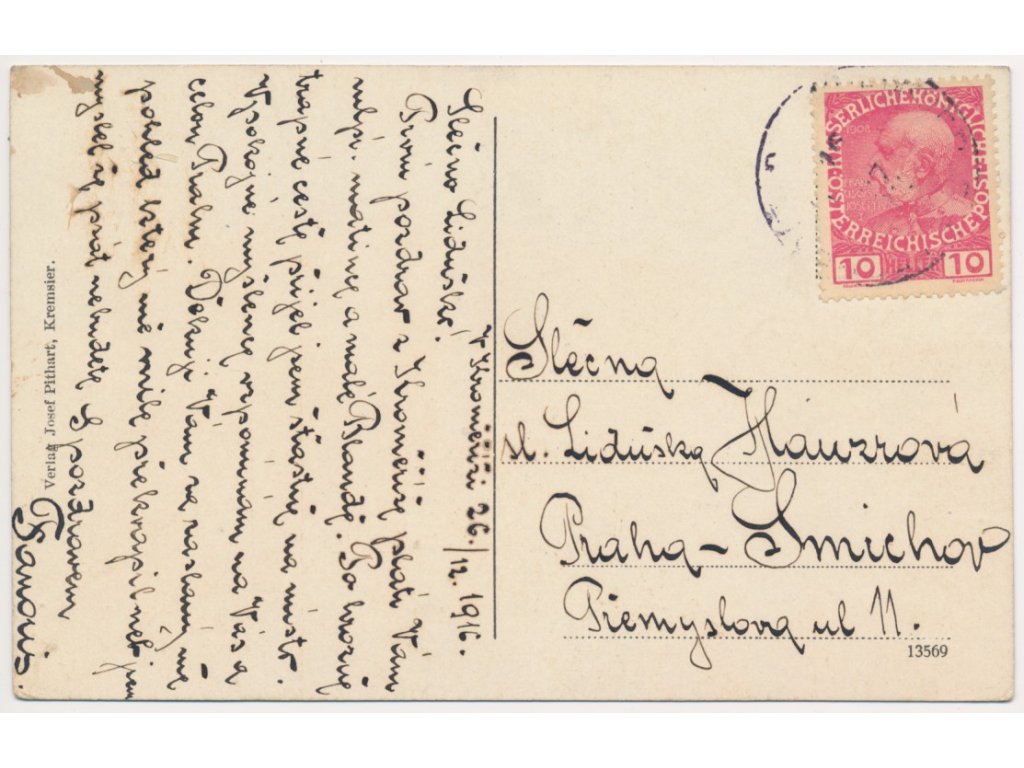 V Kroměříži 26/12. 1916.
Slečno Liduško!
První pozdrav z Kroměříže platí Vám
milpí. matince a malé Blandě. Po hrozně
trapné cestě přijel jsem šťastně na místo.
V pokojné myšlence vzpomínám na Vás a
celou Prahu. Děkuji Vám za zaslaný mě
pohled který mě mile překvapil neb jsem
myslel že psát nebudete S pozdravem
Slečna
sl. Liduška Hauzrová
Praha - Smichov
Přemyslova ul 11.
Verlag Josef Pithart, Kremsier.
13569
KAISERLICHE KÖNIGLICHE
ÖSTERREICHISCHE POST
1908
10 HELLER 10